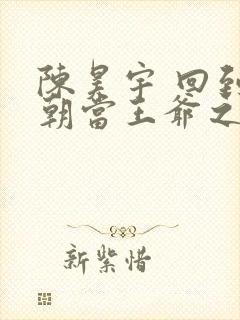 陳昊宇 回到
朝當王爺之
新紫惜